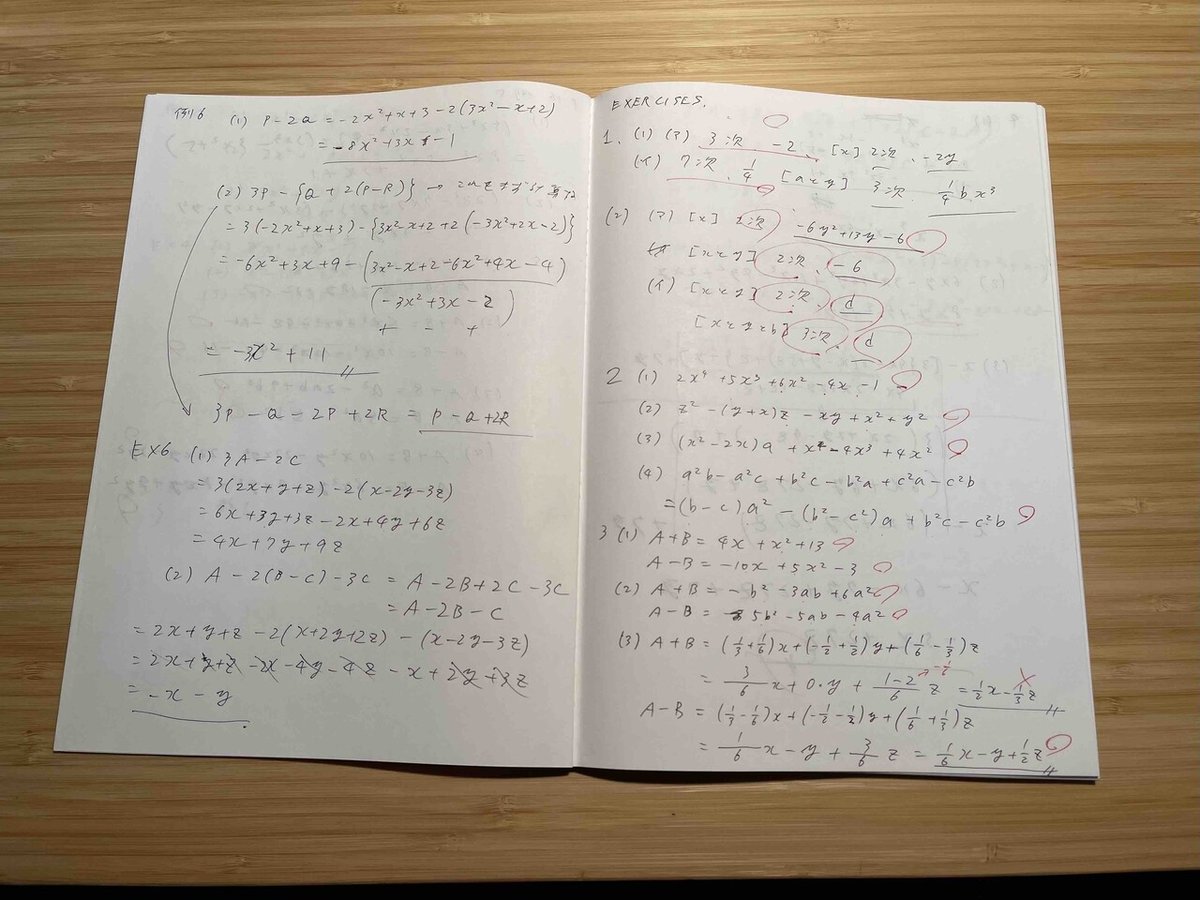 例6 (1) P-2Q = -2x²+x+3-2(3x²-x+2)
= -8x²+3x-1
(2) 3P-{Q+2(P-R)} →
= 3(-2x²+x+3)-{3x²-x+2+2(-3x²+2x-2)}
= -6x²+3x+9-(3x²-x+2-6x²+4x-4)
(-3x²+3x-2)
+ - +
= -3x²+11
3P-Q-2P+2R = P-Q+2R
EX6 (1) 3A-2C
= 3(2x+y+z)-2(x-2y-3z)
= 6x+3y+3z-2x+4y+6z
= 4x+7y+9z
(2) A-2(B-C)-3C = A-2B+2C-3C
= A-2B-C
= 2x+y+z-2(x+2y+2z)-(x-2y-3z)
= 2x+y+z-2x-4y-4z-x+2y+3z
= -x-y
EXERCISES.
1. (1) (ア) 3次 -2、[x] 2次、-2y
(イ) 7次、1/4 [aとy] 3次 1/4 b x³
(2) (ア) [x] 2次 -6y²+13y-6
[xとy] 2次、-6
(イ) [xとy] 2次、d
[xとyとb] 3次、d
2 (1) 2x⁴+5x³+6x²-4x-1
(2) z²-(y+x)z-xy+x²+y²
(3) (x²-2x)a+x⁴-4x³+4x²
(4) a²b-a²c+b²c-b²a+c²a-c²b
=(b-c)a²-(b²-c²)a+b²c-c²b
3 (1) A+B = 4x+x²+13
A-B = -10x+5x²-3
(2) A+B = -b²-3ab+6a²
A-B = 5b²-5ab-4a²
(3) A+B = (1/3+1/6)x+(-1/2+1/2)y+(1/6-1/3)z
= 3/6 x+0·y+(1-2)/6 z = 1/2x-1/3z
A-B = (1/3-1/6)x+(-1/2-1/2)y+(1/6+1/3)z
= 1/6 x-y+3/6 z = 1/6x-y+1/2z